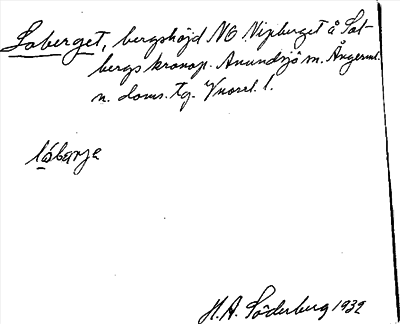 Soberget, bergshöjd NO Vipberget å Sol-
bergs kronop. Anundsjö sn. Ångerml.
n. doms. tg. Ynorrl l.
låbarje
H.A. Söderberg 1932